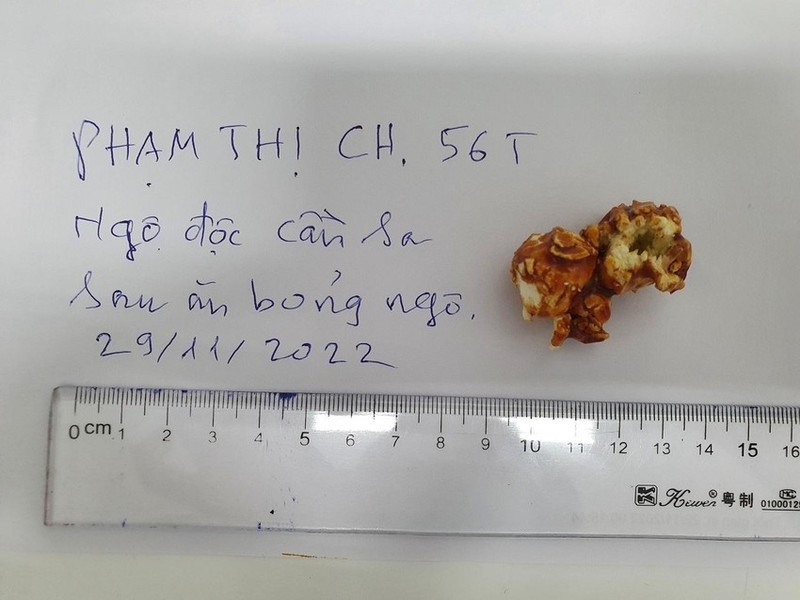 PHẠM THỊ CH. 56T
Ngộ độc cần sa
sau ăn bỏng ngô.
29/11/2022
0 cm 1 2 3 4 5 6 7 8 9 10 11 12 13 14 15 16
Kewen® 粤制